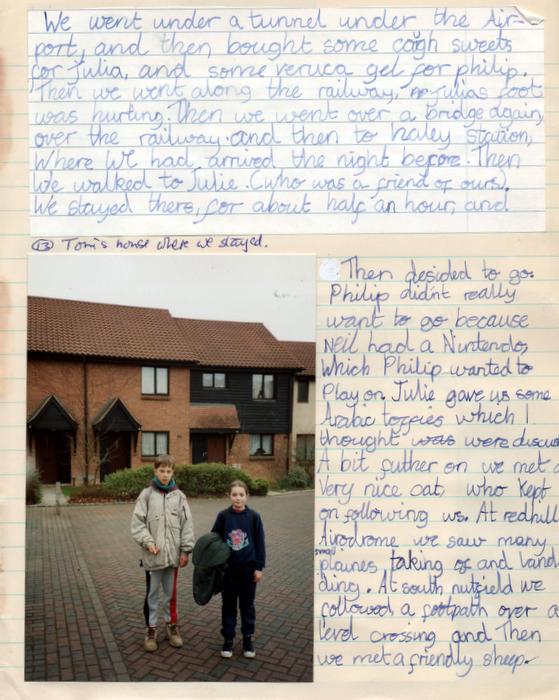 We went under a tunnel under the Air-
port, and then bought some cough sweets
for Julia, and some veruca gel for philip.
Then we went along the railway, Julias foot
was hurting. Then we went over a bridge again,
over the railway and then to haley station,
Where We had arrived the night before. Then
We walked to Julie. (who was a friend of ours).
We stayed there, for about half an hour, and
(13) Tom's house where we stayed.
Then desided to go.
Philip didn't really
want to go because
Neil had a Nintendo,
Which Philip wanted to
Play on, Julie gave us some
Arabic toffies which I
thought were
A bit futher on we met a
Very nice cat, who kept
on following us. At redhill
Airodrome we saw many
small plaines taking of and land-
ding. At south nutfield we
followed a footpath over a
level crossing and Then
we met a friendly sheep.